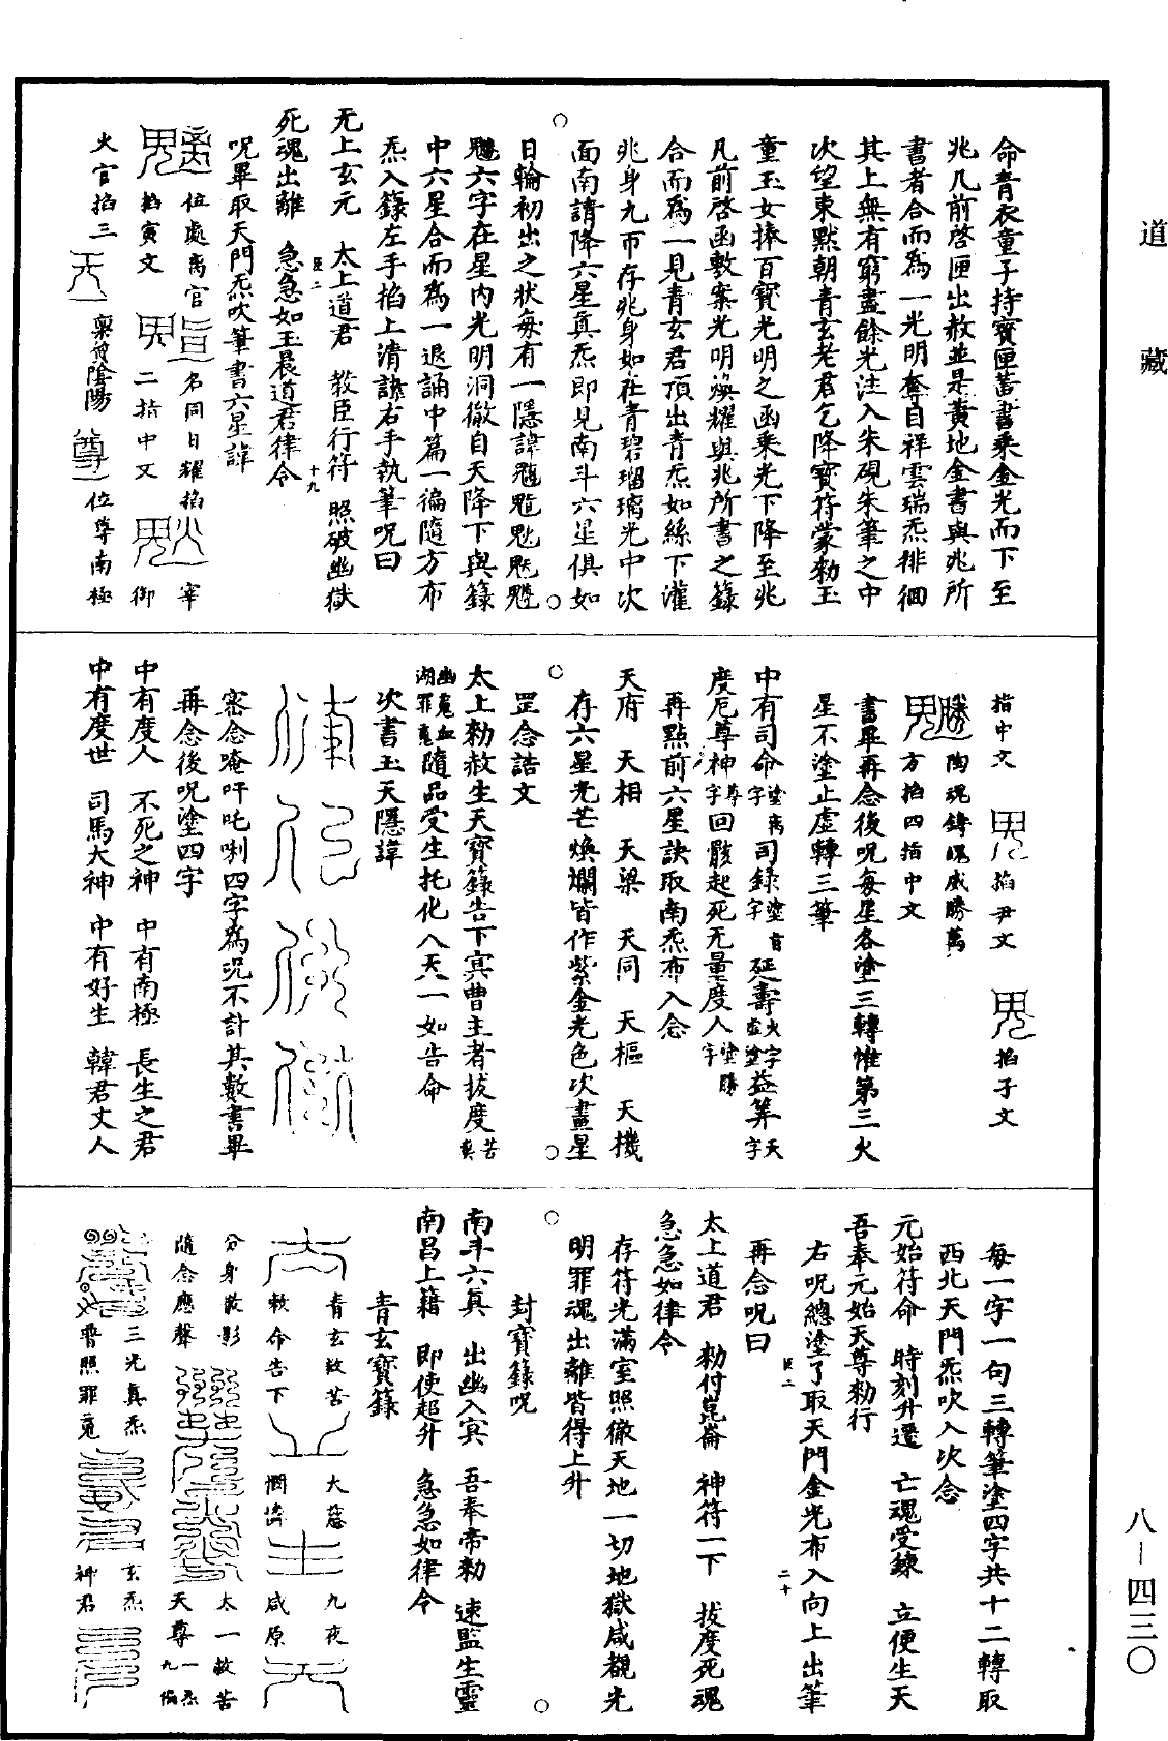 道藏
八—四三〇
命青衣童子持寶匣蓄書乘金光而下至
兆几前啓匣出赦並是黃地金書與兆所
書者合而為一光明奪目祥雲瑞炁徘徊
其上無有窮盡餘光注入朱硯朱筆之中
次望東默朝青玄老君乞降寶符蒙勑玉
童玉女捧百寶光明之函乘光下降至兆
凡前啓函敷案光明煥耀與兆所書之籙
合而為一見青玄君頂出青炁如絲下灌
兆身九帀存兆身如在青碧瑠璃光中次
面南請降六星真炁即見南斗六星俱如
日輪初出之狀每有一隱諱
六字在星內光明洞徹自天降下與籙
中六星合而為一退誦中篇一徧隨方布
炁入籙左手掐上清訣右手執筆呪曰
无上玄元　太上道君　教臣行符　照破幽獄
死魂出離　急急如玉晨道君律令
臣二　十九
呪畢取天門炁吹筆書六星諱
位處离官　名同日耀掐　宰
掐寅文　二指中文　御
火官掐三　稟質陰陽　位尊南極
指中文　掐尹文　掐子文
陶魂鑄魄威勝萬
方掐四指中文
書畢再念後呪每星各塗三轉惟第三火
星不塗止虛轉三筆
中有司命塗离字司錄塗官字延壽火字虛塗益筭天字
度厄尊神尊字回骸起死无量度人塗勝字
再點前六星訣取南炁布入念
天府　天相　天梁　天同　天樞　天機
存六星光芒煥爛皆作紫金光色次畫星
罡念誥文
太上勑赦生天寶籙告下冥曹主者拔度苦爽
幽魂血湖罪魂隨品受生托化人天一如告命
次書玉天隱諱
密念唵吽吒唎四字為呪不計其數書畢
再念後呪塗四字
中有度人　不死之神　中有南極　長生之君
中有度世　司馬大神　中有好生　韓君丈人
每一字一句三轉筆塗四字共十二轉取
西北天門炁吹入次念
元始符命　時刻升遷　亡魂受鍊　立便生天
吾奉元始天尊勑行
右呪總塗了取天門金光布入向上出筆
臣二　二十
再念呪曰
太上道君　勑付崑崙　神符一下　拔度死魂
急急如律令
存符光滿室照徹天地一切地獄咸覩光
明罪魂出離皆得上升
封寶籙呪
南斗六真　出幽入冥　吾奉帝勑　速監生靈
南昌上籍　即使超升　急急如律令
青玄寶籙
青玄救苦　大慈　九夜
敕命告下　憫濟　咸原
分身散影　太一救苦
隨念應聲　天尊一炁九徧
三光真炁　玄炁
普照罪魂　神君